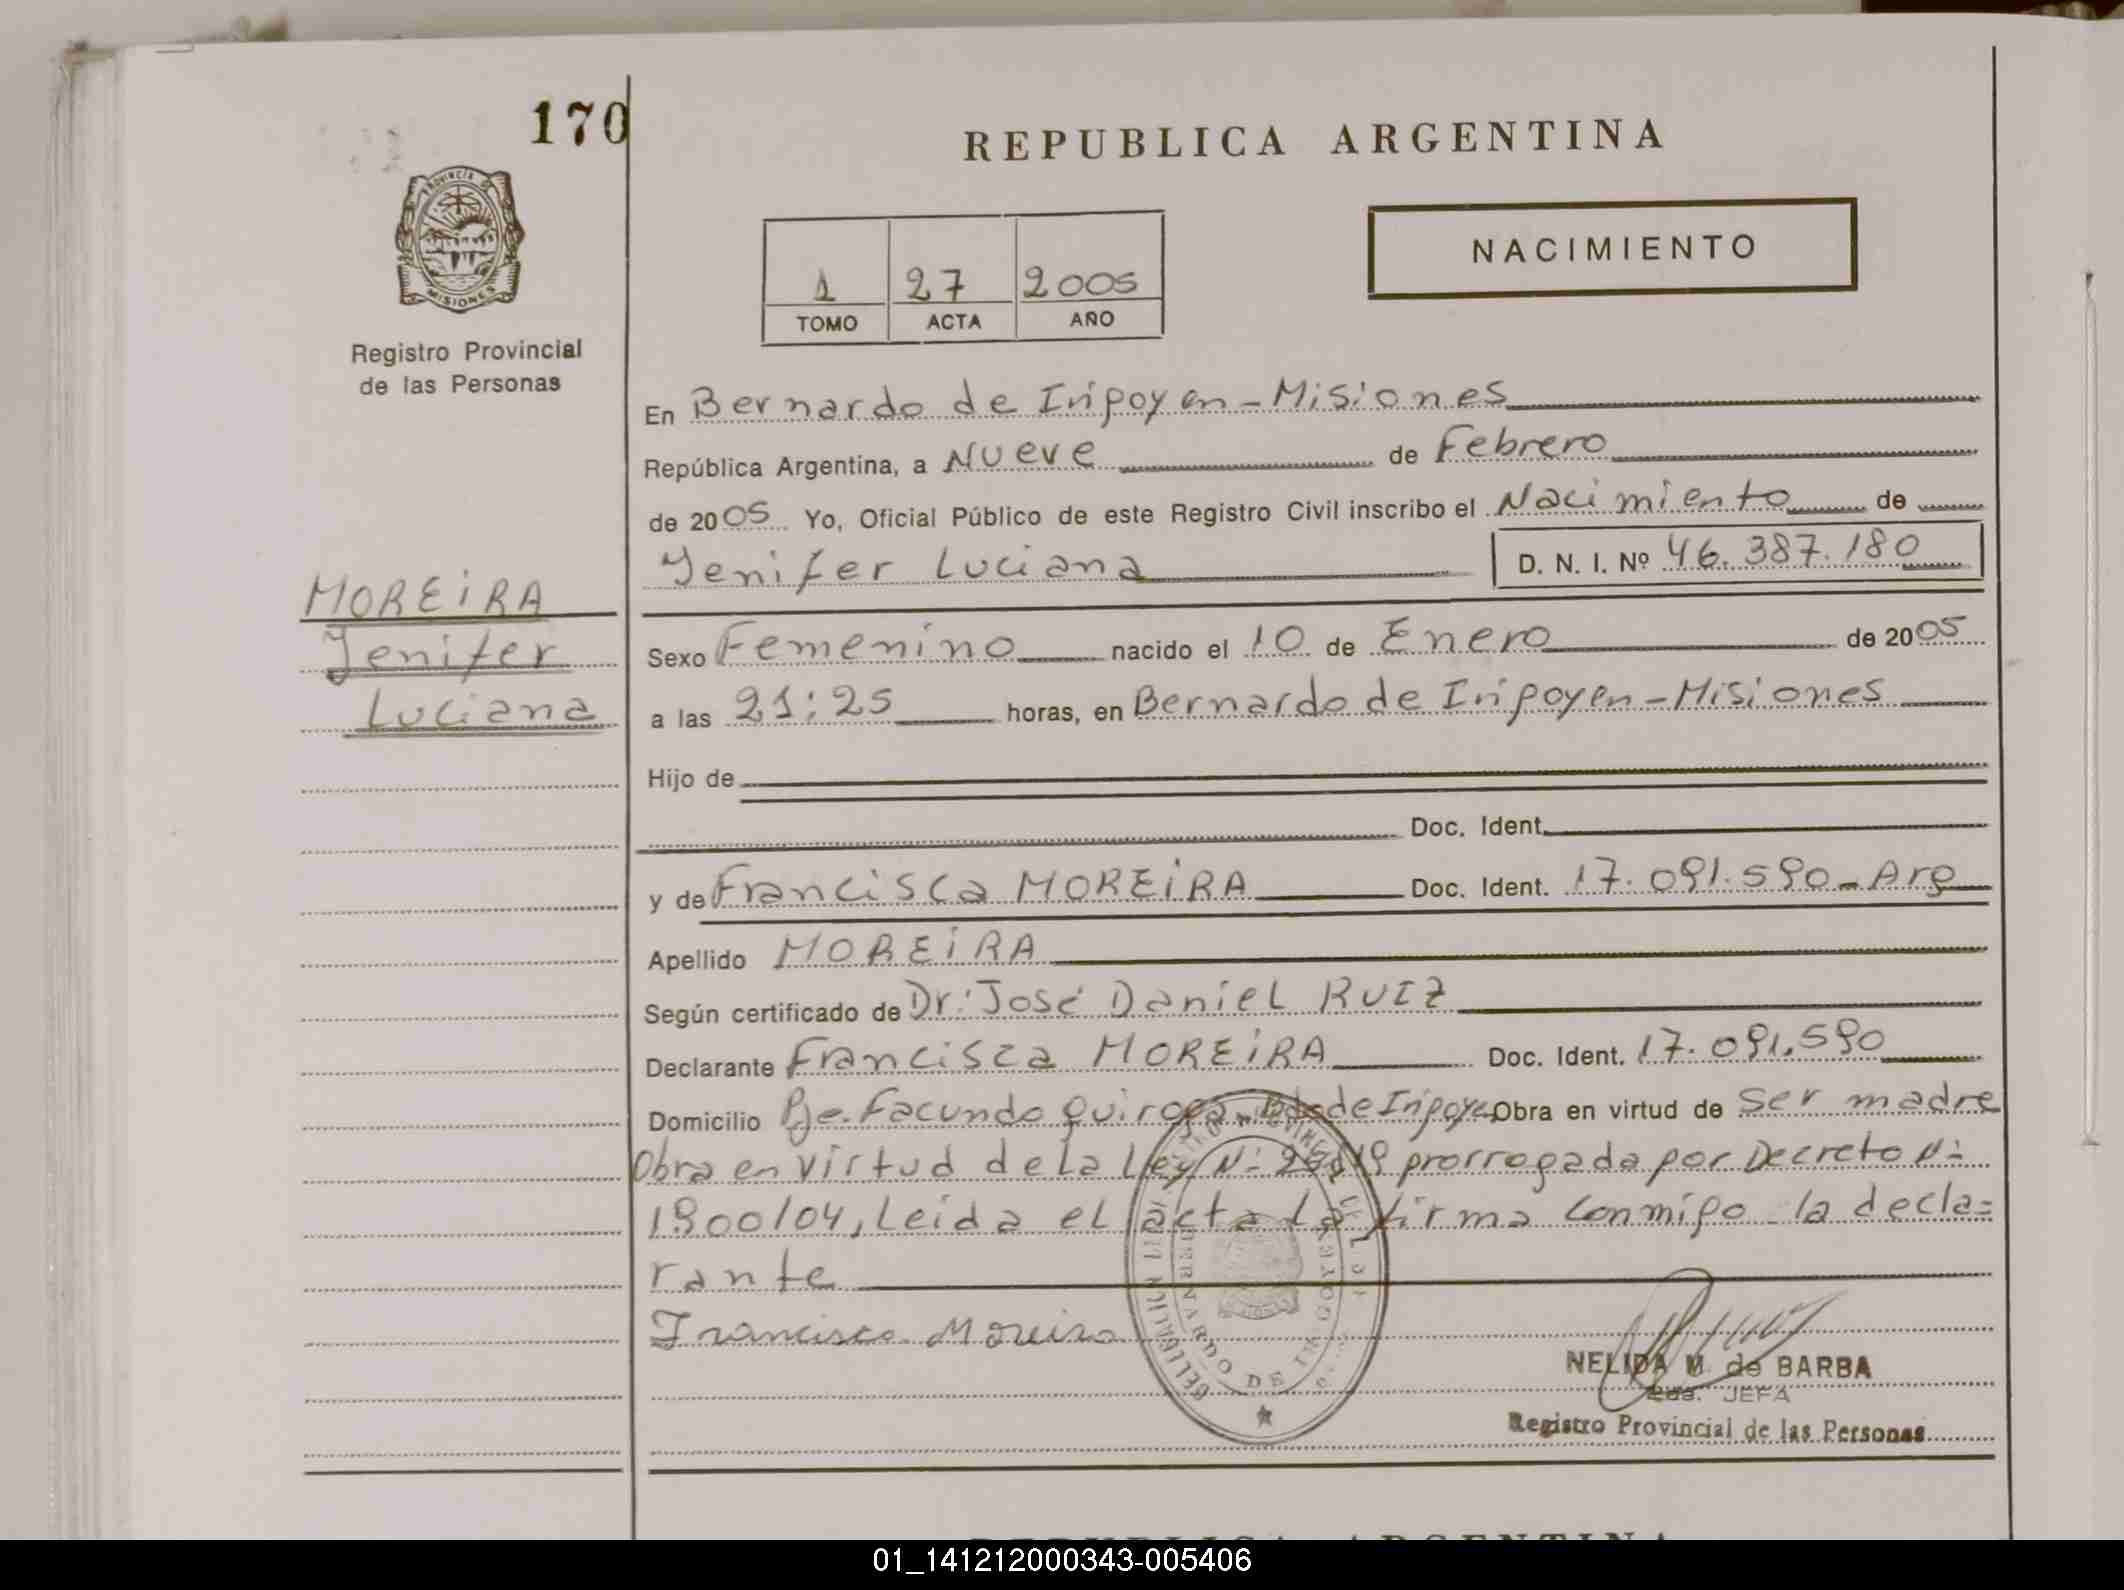 170
REPUBLICA ARGENTINA
PROVINCIA DE
MISIONES
NACIMIENTO
1 27 2005
TOMO ACTA AÑO
Registro Provincial
de las Personas
En Bernardo de Iripoyen - Misiones
República Argentina, a Nueve de Febrero
de 2005 Yo, Oficial Público de este Registro Civil inscribo el Nacimiento de
Yenifer Luciana D. N. I. Nº 46.387.180
MOREIRA
Yenifer
Luciana
Sexo Femenino nacido el 10 de Enero de 2005
a las 21:25 horas, en Bernardo de Iripoyen - Misiones
Hijo de
Doc. Ident.
y de Francisca MOREIRA Doc. Ident. 17.091.590 - Arg
Apellido MOREIRA
Según certificado de Dr: José Daniel RUIZ
Declarante Francisca MOREIRA Doc. Ident. 17.091.590
Domicilio Pje. Facundo Quiroga - Bdo de Iripoyen Obra en virtud de Ser madre
Obra en virtud de la Ley N: prorrogada por Decreto N:
1900/04, Leida el acta La firma conmigo la decla=
rante
Francisca Moreira
BERNARDO DE IRIGOYEN
NELIDA M. de BARBA
2da. JEFA
Registro Provincial de las Personas
REPUBLICA ARGENTINA
01_141212000343-005406